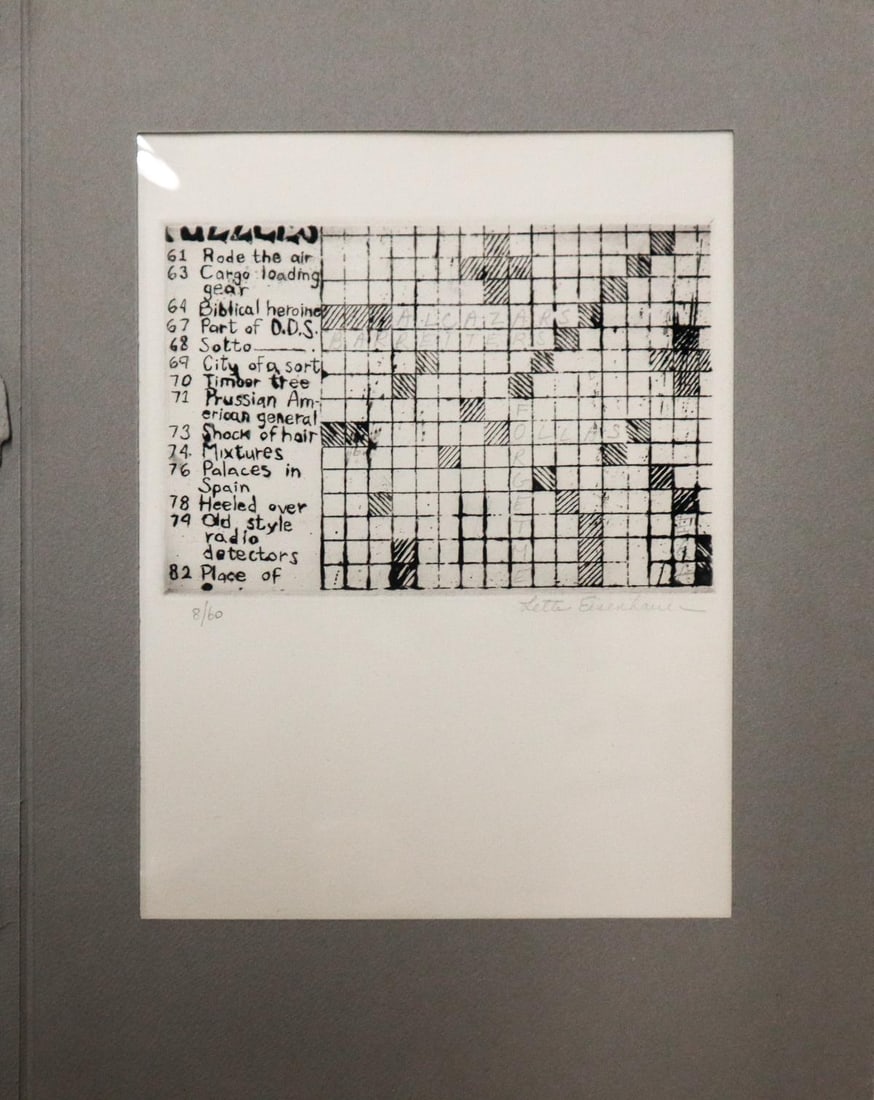 61 Rode the air
63 Cargo loading
gear
64 Biblical heroine
67 Part of D.D.S.
68 Sotto
69 City of a sort
70 Timber tree
71 Prussian Am-
erican general
73 Shock of hair
74 Mixtures
76 Palaces in
Spain
78 Heeled over
79 Old style
radio
detectors
82 Place of
ALCAZARS
BARRETTERS
OLLAS
FORGETME
8/60
Lette Eisenhauer